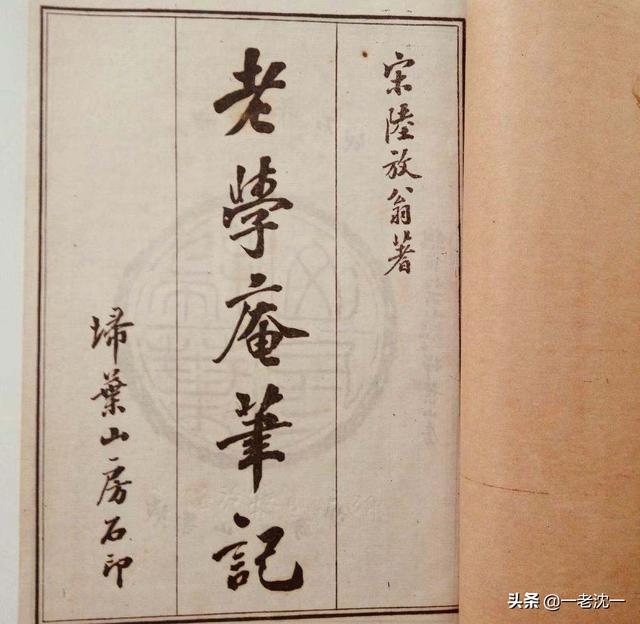 宋陸放翁著
老學庵筆記
埽葉山房石印
头条 @一老沈一